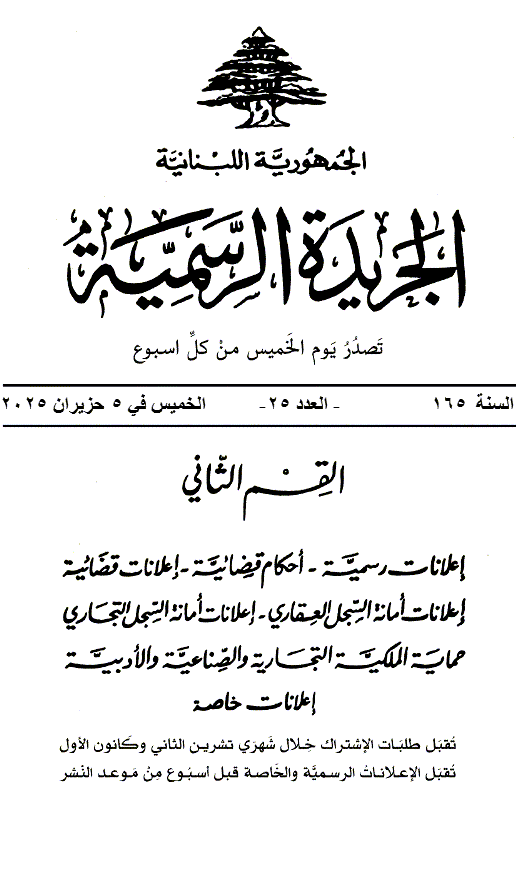 الجُمهُوريَّة اللبْنانيَّة
الجَريدَة الرسَّميَّة
تَصدُرُ يَوم الخَميس منْ كلِّ اسبوع
السنة ١٦٥ - العدد ٢٥- الخميس في ٥ حزيران ٢٠٢٥
القِسْم الثّاني
إعلانات رسميَّة - أحكام قضائيَّة - إعلانات قضائية
إعلانات أمانة السِّجل العقاري - إعلانات أمانة السِّجل التجاري
حماية الملكيَّة التجارية والصِّناعيَّة والأدبيَّة
إعلانات خاصة
تُقبَل طلبَات الإشتراك خِلال شَهرَي تشرين الثاني وكَانون الأول
تُقبَل الإعلاناتُ الرسميَّة والخَاصة قبل أسبُوع مِنْ مَوعد النَشر